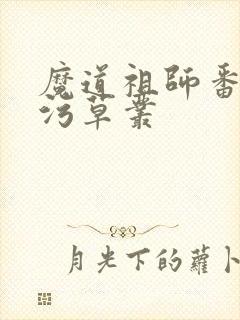 魔道祖師番
污草叢
月光下的蘿卜